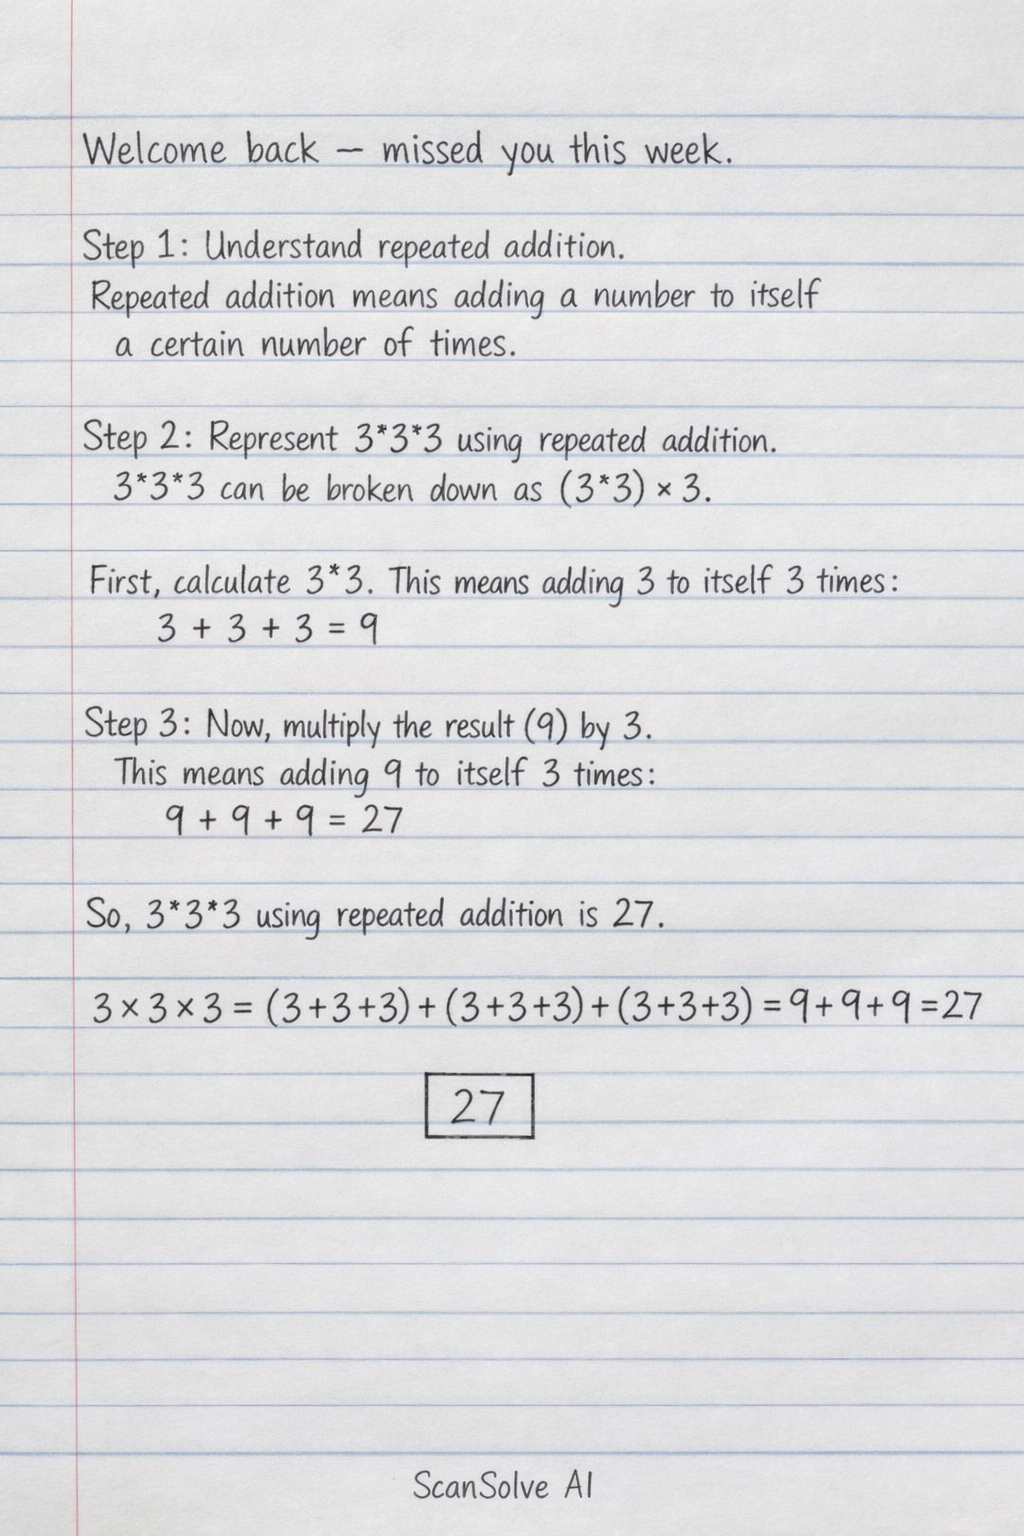 Welcome back – missed you this week.
Step 1: Understand repeated addition.
Repeated addition means adding a number to itself
a certain number of times.
Step 2: Represent 3*3*3 using repeated addition.
3*3*3 can be broken down as (3*3) × 3.
First, calculate 3*3. This means adding 3 to itself 3 times:
3 + 3 + 3 = 9
Step 3: Now, multiply the result (9) by 3.
This means adding 9 to itself 3 times:
9 + 9 + 9 = 27
So, 3*3*3 using repeated addition is 27.
3 × 3 × 3 = (3+3+3) + (3+3+3) + (3+3+3) = 9+9+9 = 27
27
ScanSolve AI